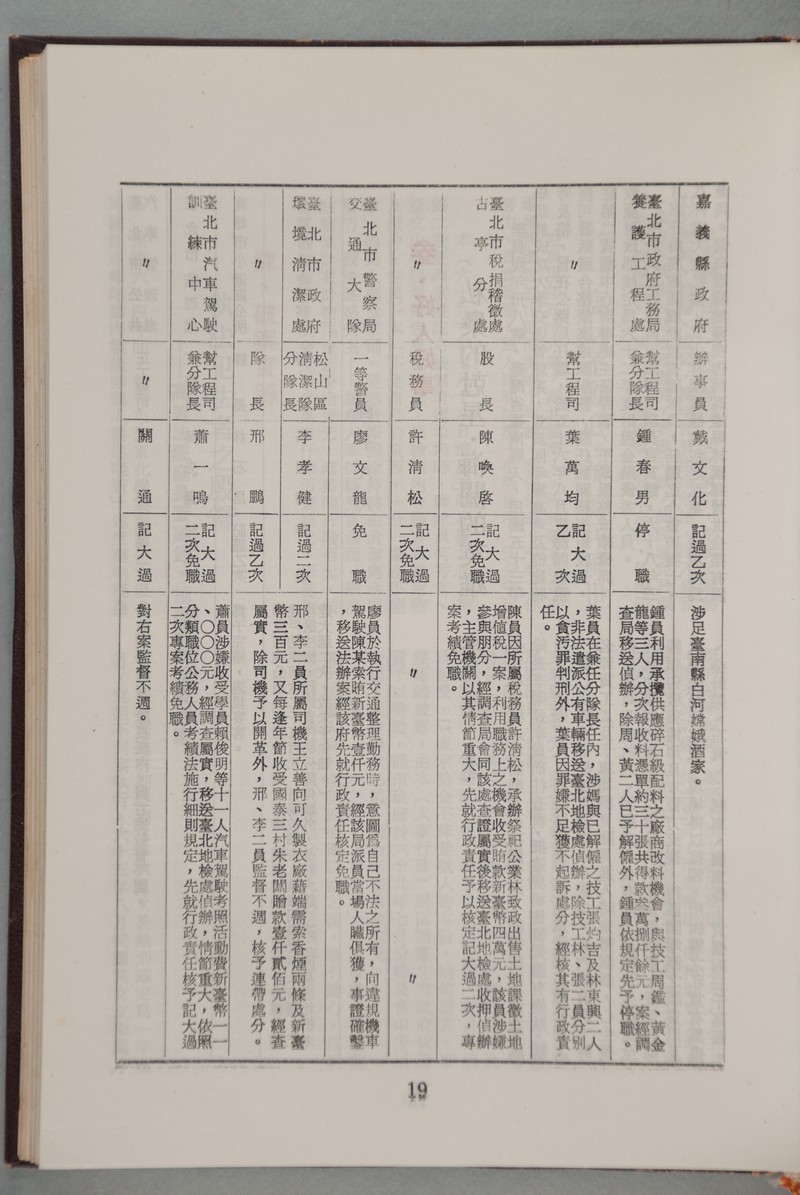 嘉義縣政府
辦事員
戴文化
記過乙次
涉足臺南縣白河嫦娥酒家。
臺北市政府工務局
養護工程處
幫工程司
兼分隊長
鍾春男
停職
鍾員利用承攬供應碎石級配料之廠商改料機會，與技工周鑑、黃金
龍等三人，分次報收料憑單約三十張共得款叁萬捌仟餘元，案經調
查局移送偵辦，除周、黃二人已予解僱外，鍾員依規定先予停職。
〃
幫工程司
葉萬均
記大過
乙次
葉員在兼任分隊長任內，涉嫣與已解僱之技工張灼吉及林東興二人
，非法遣派公有車輛移送臺北地檢處偵辦，除技工林、張二員分別
以貪污罪判刑外，葉員因罪嫌不足獲不起訴處分，經核其有行政責
任。
臺北市稅捐稽徵處
古亭分處
股長
陳喚啓
記大過
二次免職
陳員因所屬稅務員許清松，承辦祭祀公業林致政出售土地課徵土地
增值稅一案，利用職務上之機會收受賄款新臺幣四萬元，該員涉嫌
參與朋分，經調查局會同該處查證屬實後移送臺北地檢處收押偵辦
，主管機關以其情節重大，先就行政責任予以核定記大過二次，專
案考績免職。
〃
稅務員
許清松
記大過
二次免職
〃
〃
臺北市警察局
交通大隊
一等警員
廖文龍
免職
廖員於執行交通整理勤務時，意圖爲自己不法之所有，向違規機車
駕駛陳某索賄新臺幣壹仟元，經該局派員當場人贓俱獲，事證確鑿
，移送法辦案經該府先就行政責任核定免職。
臺北市政府
環境清潔處
松山區
清潔隊
分隊長
李孝健
記過二次
邢、李二員所屬司機王立善向可久製衣廠藉端需索香煙兩條及新臺
幣三百元，又每逢年節收受國泰三村朱老闆贈款壹仟貳佰元，經查
屬實，除司機予以開革外，邢、李二員監督不週，核予連帶處分。
〃
隊長
邢鵬
記過乙次
臺北市汽車駕駛
訓練中心
幫工程司
兼分隊長
蕭一鳴
記大過
二次免職
蕭員涉嫌收受學員賴俊明等十一人汽車駕駛考照活動費新臺幣一一
、〇〇〇元，經調查屬實，移送臺北地檢處偵辦，情節重大，依照
分類職位公務人員考績法施行細則規定，先就行政責任核予記大過
二次專案考績免職。
〃
〃
關通
記大過
對右案監督不週。
19